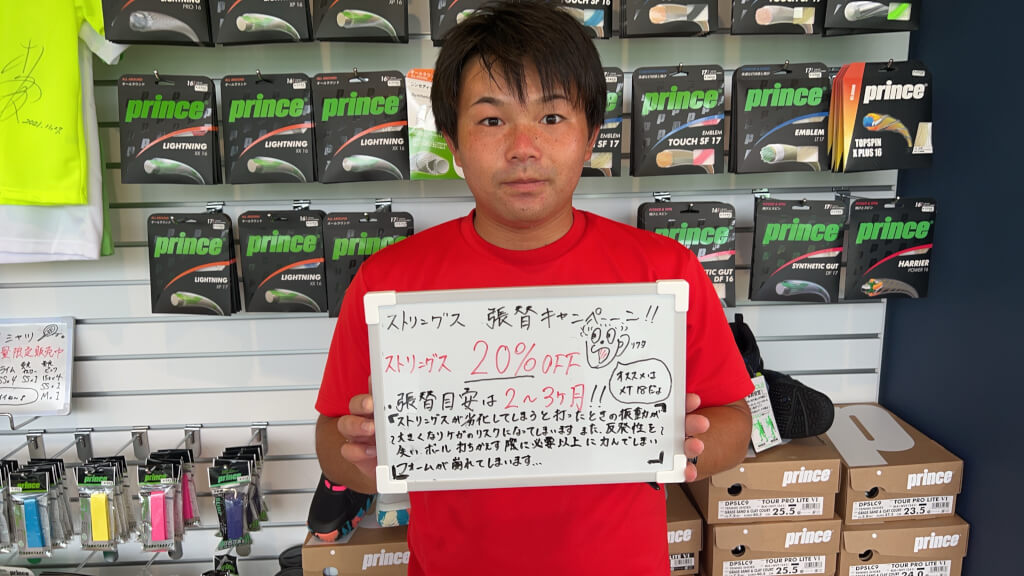 PRO 16
XP 16
TOUCH SF 16
2021.10.13
prince
LIGHTNING
XX 16
prince
LIGHTNING
XX 16
prince
LIGHTNING
XX 16
prince
EMBLEM
TOUCH SF 17
prince
EMBLEM
LT 17
prince
TOPSPIN
X PLUS 16
prince
LIGHTNING
prince
LIGHTNING
XX 16
prince
prince
SYNTHETIC GUT
DF 16
prince
SYNTHETIC GUT
DF 17
prince
HARRIER
POWER 16
ストリングス 張替キャンペーン!!
ストリングス 20%OFF
ソワタ
オススメは
XT 18だよ
・張替目安は2~3ヶ月!!
ストリングスが劣化してしまうと打ったときの振動が
大きくなりケガのリスクになってしまいます また、反発性を
失い、ボール打ちかえす際に必要以上に力んでしまい
フォームが崩れてしまいます...
シャツ
量限定販売中
prince
DPSLC9
TOUR PRO LITE VI
25.5
prince
DPSLC9
TOUR PRO LITE VI
23.5
prince
DPSLC9
TOUR PRO LITE VI
25.5
prince
DPSLC9
TOUR PRO LITE VI
24.0
prince
prince